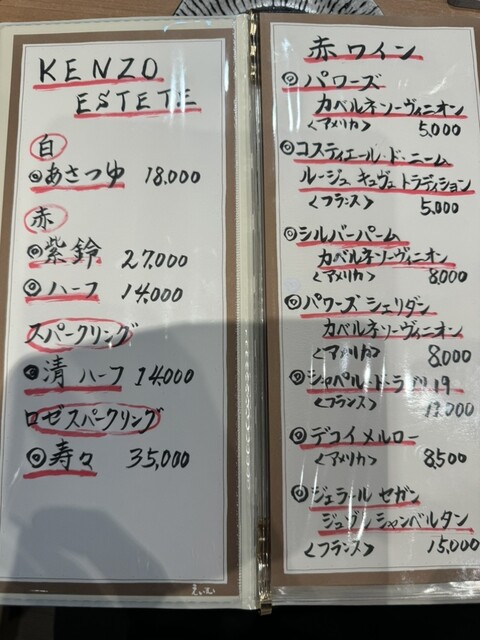 KENZO
ESTETE
白
◎あさつゆ 18,000
赤
◎紫鈴 27,000
◎ハーフ 14,000
スパークリング
◎清 ハーフ 14,000
ロゼスパークリング
◎寿々 35,000
赤ワイン
◎パワーズ
カベルネソーヴィニオン
<アメリカ> 5,000
◎コスティエール・ド・ニーム
ルージュ キュヴェ トラディション
<フランス> 5,000
◎シルバーパーム
カベルネソーヴィニオン
<アメリカ> 8,000
◎パワーズ シェリダン
カベルネソーヴィニオン
<アメリカ> 8,000
◎シャペル・ド・ラ 19
<フランス>
◎デコイ メルロー
<アメリカ> 8,500
◎ジェラール セガン
ジュヴレ シャンベルタン
<フランス> 15,000